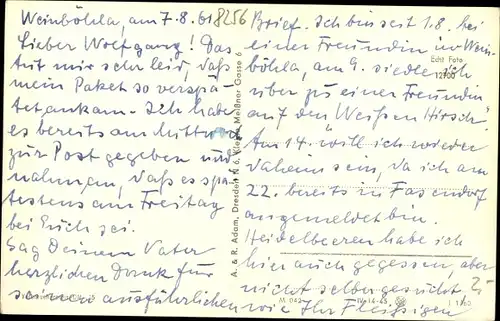 Weinböhla, am 7.8.61
8256
Lieber Wolfgang! Das
tut mir sehr leid, daß
mein Paket so verspä-
tet ankam. Ich habe
es bereits am Mittwoch
zur Post gegeben und
nahm an, daß es spä-
testens am Freitag
bei Euch sei.
Sag Deinem Vater
herzlichen Dank für
seinen ausführlichen
A. & R. Adam, Dresden N 6, Meißner Gasse 6
Brief. Ich bin seit 1.8. bei
einer Freundin in Wein-
böhla, am 9. siedle ich
rüber zu einer Freundin
auf den Weißen Hirsch.
Am 14. will ich wieder
daheim sein, da ich am
22. bereits in
angemeldet bin.
Heidelbeeren habe ich
hier auch gegessen, aber
nicht selber gesucht
wie Ihr Fleißigen
Echt Foto
12700